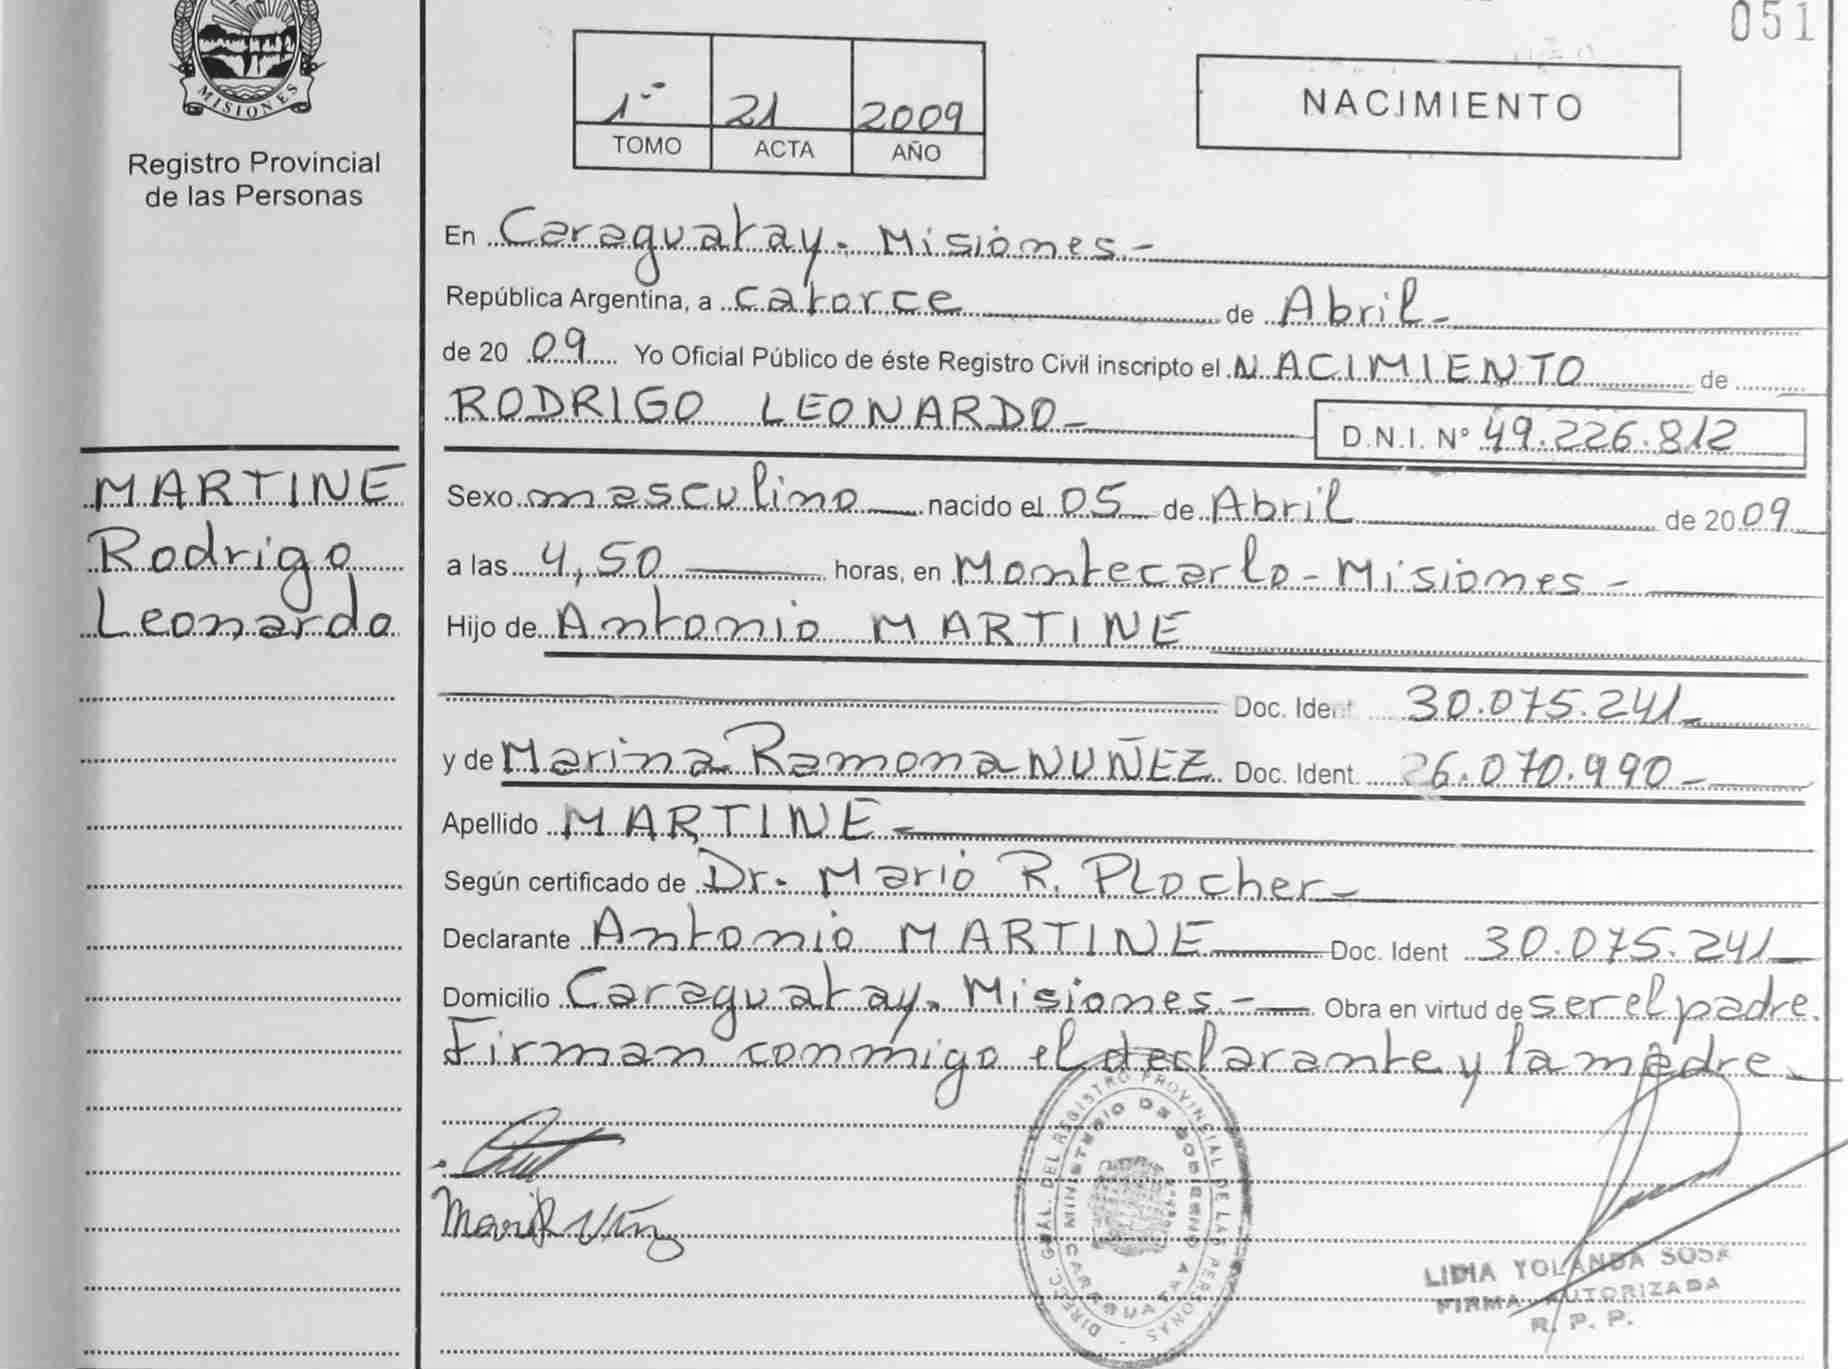 051
MISIONES
Registro Provincial
de las Personas
1º 21 2009
TOMO ACTA AÑO
NACIMIENTO
En Caraguatay. Misiones.-
República Argentina, a catorce de Abril-
de 20 09 Yo Oficial Público de éste Registro Civil inscripto el NACIMIENTO de
RODRIGO LEONARDO-
D.N.I. Nº 49.226.812
MARTINE
Rodrigo
Leonardo
Sexo masculino nacido el 05 de Abril de 2009
a las 4,50 horas, en Montecarlo-Misiones-
Hijo de Antonio MARTINE
Doc. Ident 30.075.241-
y de Marina Ramona NUÑEZ Doc. Ident. 26.070.990-
Apellido MARTINE-
Según certificado de Dr. Mario R. PLocher-
Declarante Antonio MARTINE Doc. Ident 30.075.241-
Domicilio Caraguatay. Misiones.- Obra en virtud de ser el padre.
Firman conmigo el declarante y la madre-
DIREC. GRAL. DEL REGISTRO PROVINCIAL DE LAS PERSONAS
MINISTERIO DE GOBIERNO
CARAGUATAY
LIDIA YOLANDA SOSA
FIRMA AUTORIZADA
R. P. P.